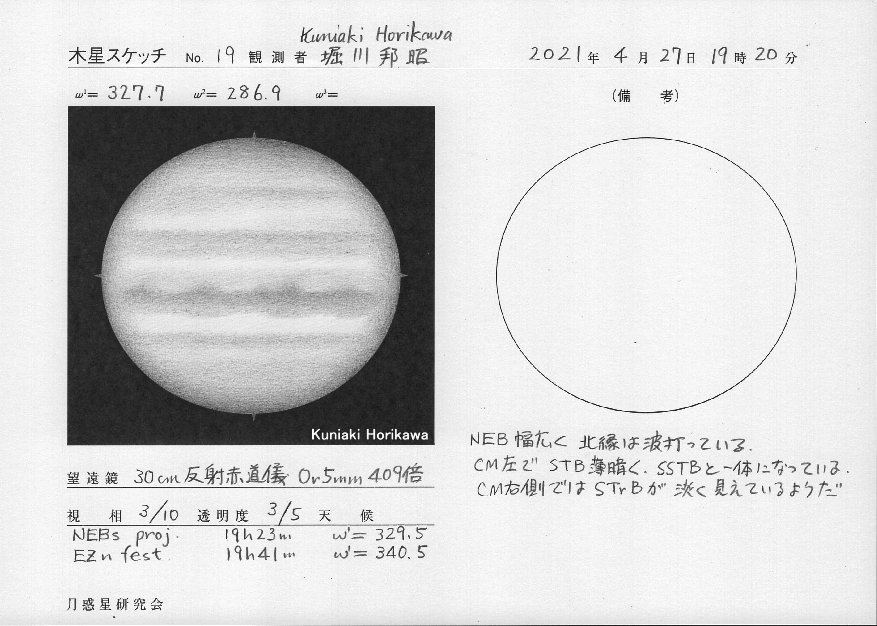 Kuniaki Horikawa
木星スケッチ No. 19 観測者 堀川邦昭
2021年 4月27日 19時20分
ω¹= 327.7 ω²= 286.9 ω³=
(備 考)
Kuniaki Horikawa
NEB幅広く 北縁は波打っている.
CM左で STB薄暗く、SSTBと一体になっている.
CM右側では STrBが 淡く見えているようだ
望遠鏡 30cm反射赤道儀 Or5mm 409倍
視 相 3/10 透明度 3/5 天 候
NEBs proj. 19h23m ω¹= 329.5
EZn fest. 19h41m ω¹= 340.5
月惑星研究会